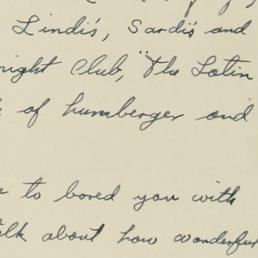 Lindi's, Sardi's and
night Club, "The Latin
of humberger and
to bored you with
talk about how wonderful